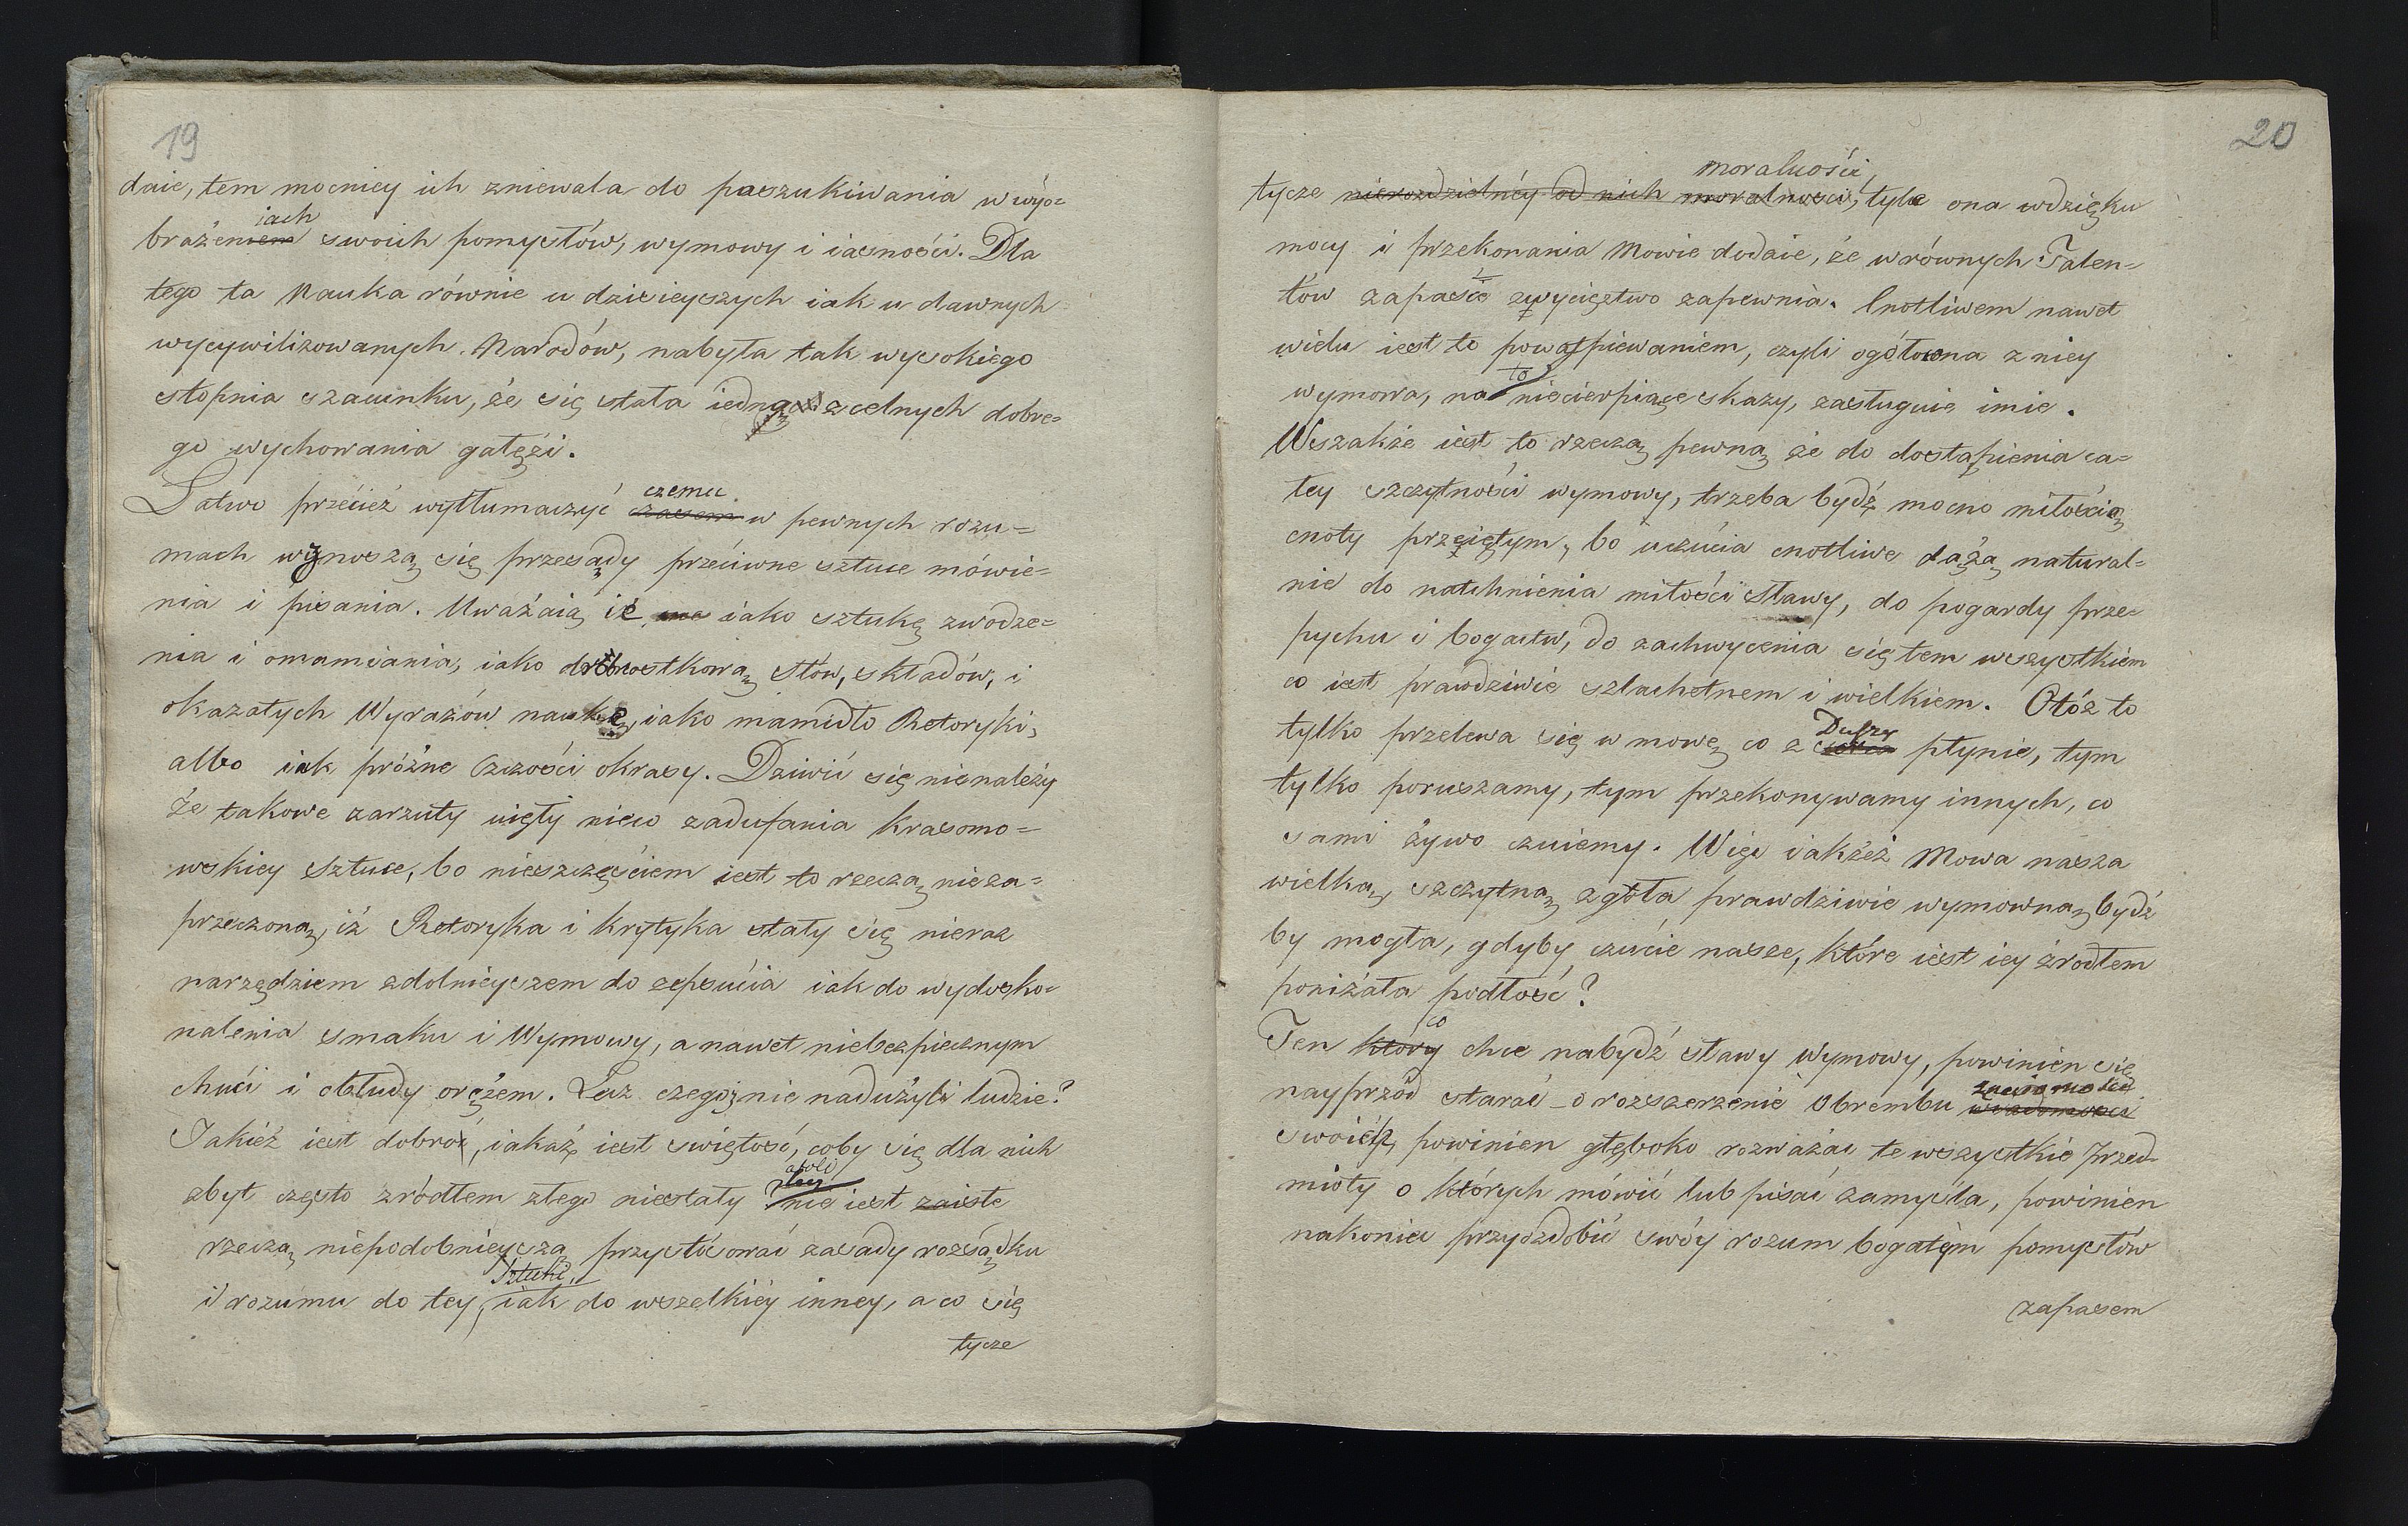 19
daie, tem mocniey ich zniewala do poszukiwania w wyo=
brażeniach swoich pomysłów, wymowy i iasności. Dla
tego ta Nauka równie u dzisieyszych iak u dawnych
wycywilizowanych Narodów, nabyła tak wysokiego
stopnia szacunku, że się stała iedną z celnych dobre=
go wychowania gałęźi.
Łatwo przećież wytłumaczyć czemu w pewnych rozu=
mach wznoszą się przesądy przećiwne sztuce mówie=
nia i pisania. Uważaią ie iako sztukę zwodze=
nia i omamiania, iako drobnostkową słów, składów, i
okazałych Wyrazów naukę, iako mamidło Retoryki,
albo iak próżne Czczośći okrasy. Dziwić się nienależy
że takowe zarzuty uięły nieco zadufania krasomo=
wskiey Sztuce, bo nieszczęśćiem iest to rzeczą nieza=
przeczoną, iż Retoryka i krytyka stały się nieraz
narzędziem zdolnieyszem do zepsućia iak do wydosko=
nalenia smaku i Wymowy, a nawet niebezpiecznym
chući i obłudy orężem. Lecz czegoż nie nadużyli ludzie?
Jakież iest dobro, iakaż iest swiętość, coby się dla nich
zbyt często zródłem złego niestały? atoli nie iest zaiste
rzeczą niepodobnieyszą przystósować zasady rozsądku
i rozumu do tey Sztuki, iak do wszelkiéy inney, a co się
tycze
20
tycze nierozdzielnéy od nich moralności moralnośći, tyle ona wdzięku
mocy i przekonania Mowie dodaie, że w równych Talen=
tów zapaśie zwycięztwo zapewnia. Cnotliwem nawet
wielu iest to powątpiewaniem, czyli ogołocona z niey
wymowa, na to niecierpiące skazy, zasługuie imie.
Wszakże iest to rzeczą pewną że do dostąpienia ca=
łey szczytnośći wymowy, trzeba bydź mocno miłośćią
cnoty przeiętym, bo uczućia cnotliwe dążą natural=
nie do natchnienia miłośći sławy, do pogardy prze=
pychu i bogactw, do zachwycenia się tem wszystkiem
co iest prawdziwie szlachetnem i wielkiem. Otóż to
tylko przelewa się w mowę co z Duszy płynie, tym
tylko poruszamy, tym przekonywamy innych, co
sami żywo czuiemy. Więc iakżeż Mowa nasza
wielką, szczytną zgoła prawdziwie wymowną bydź
by mogła, gdyby czućie nasze, które iest iey źrodłem
poniżała podłość?
Ten który co chce nabydź sławy Wymowy, powinien się
nayprzód starać o rozszerzenie Obrembu znaiomośći
swoich, powinien głęboko rozważać te wszystkie Przed=
mioty o których mówić lub pisać zamyśla, powinien
nakoniec przyozdobić swóy rozum bogatym pomysłów
zapasem